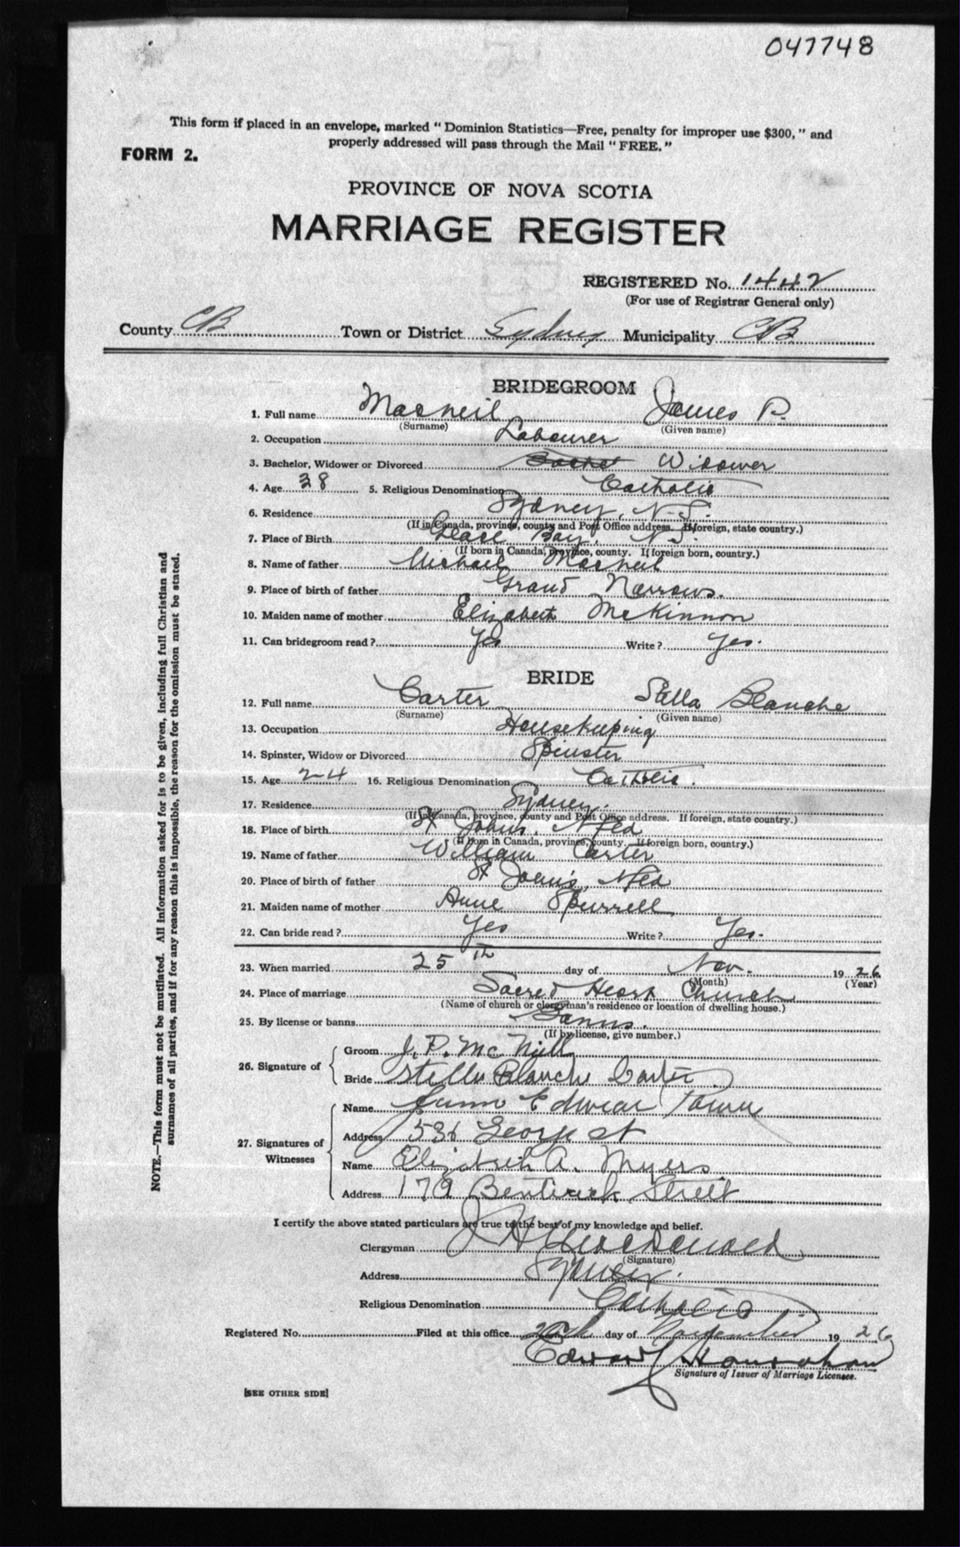 047748
This form if placed in an envelope, marked "Dominion Statistics—Free, penalty for improper use $300," and
properly addressed will pass through the Mail "FREE."
FORM 2.
PROVINCE OF NOVA SCOTIA
MARRIAGE REGISTER
REGISTERED No. 1442
(For use of Registrar General only)
County CB Town or District Sydney Municipality CB
BRIDEGROOM
1. Full name Macneil James P.
(Surname) (Given name)
2. Occupation Labourer
3. Bachelor, Widower or Divorced Widower
4. Age 38 5. Religious Denomination Catholic
6. Residence Sydney, N.S.
(If in Canada, province, county and Post Office address. If foreign, state country.)
7. Place of Birth Glace Bay, N.S.
(If born in Canada, province, county. If foreign born, country.)
8. Name of father Michael Macneil
9. Place of birth of father Grand Narrows.
10. Maiden name of mother Elizabeth McKinnon
11. Can bridegroom read? Yes Write? Yes.
BRIDE
12. Full name Carter Stella Blanche
(Surname) (Given name)
13. Occupation Housekeeping
14. Spinster, Widow or Divorced Spinster
15. Age 24 16. Religious Denomination Catholic.
17. Residence Sydney.
(If in Canada, province, county and Post Office address. If foreign, state country.)
18. Place of birth St Johns, Nfld
(If born in Canada, province, county. If foreign born, country.)
19. Name of father William Carter
20. Place of birth of father St John's, Nfld
21. Maiden name of mother Anne Spurrell
22. Can bride read? Yes Write? Yes.
23. When married 25th day of Nov. 1926
(Month) (Year)
24. Place of marriage Sacred Heart Church
(Name of church or clergyman's residence or location of dwelling house.)
25. By license or banns Banns.
(If by license, give number.)
26. Signature of Groom J. P. McNeil
Bride Stella Blanche Carter
27. Signatures of Witnesses Name Edward
Address 536 George St
Name Elizabeth A. Myers
Address 179 Bentinck Street
I certify the above stated particulars are true to the best of my knowledge and belief.
Clergyman J H MacDonald
(Signature)
Address Sydney.
Religious Denomination Catholic
Registered No. Filed at this office day of November 1926
Edward Hanrahan
Signature of Issuer of Marriage Licenses.
[SEE OTHER SIDE]
NOTE.—This form must not be mutilated. All information asked for is to be given, including full Christian and
surnames of all parties, and if for any reason this is impossible, the reason for the omission must be stated.